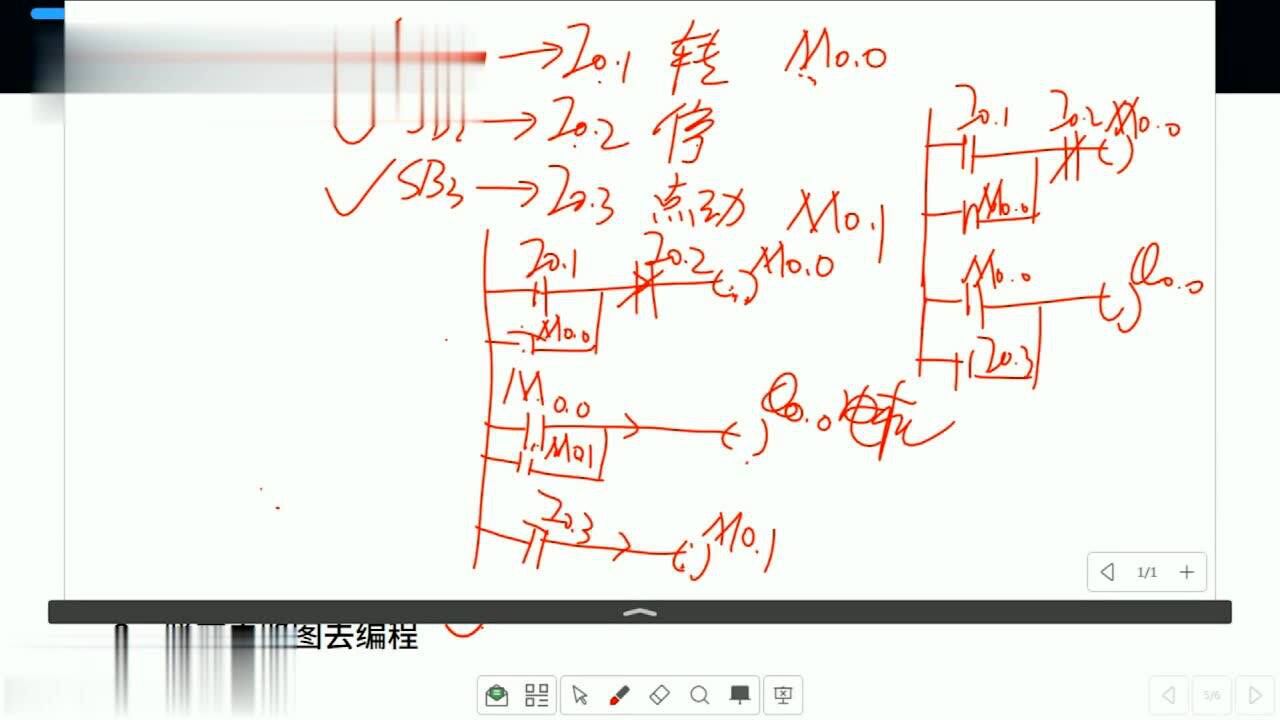 → I0.1 转 M0.0
SB2 → I0.2 停
✓ SB3 → I0.3 点动 M0.1
I0.1 I0.2 M0.0
M0.0
M0.0 Q0.0
M0.1
I0.3 M0.1
I0.1 I0.2 M0.0
M0.0
M0.0 Q0.0
I0.3
1/1 +
图去编程
5/6